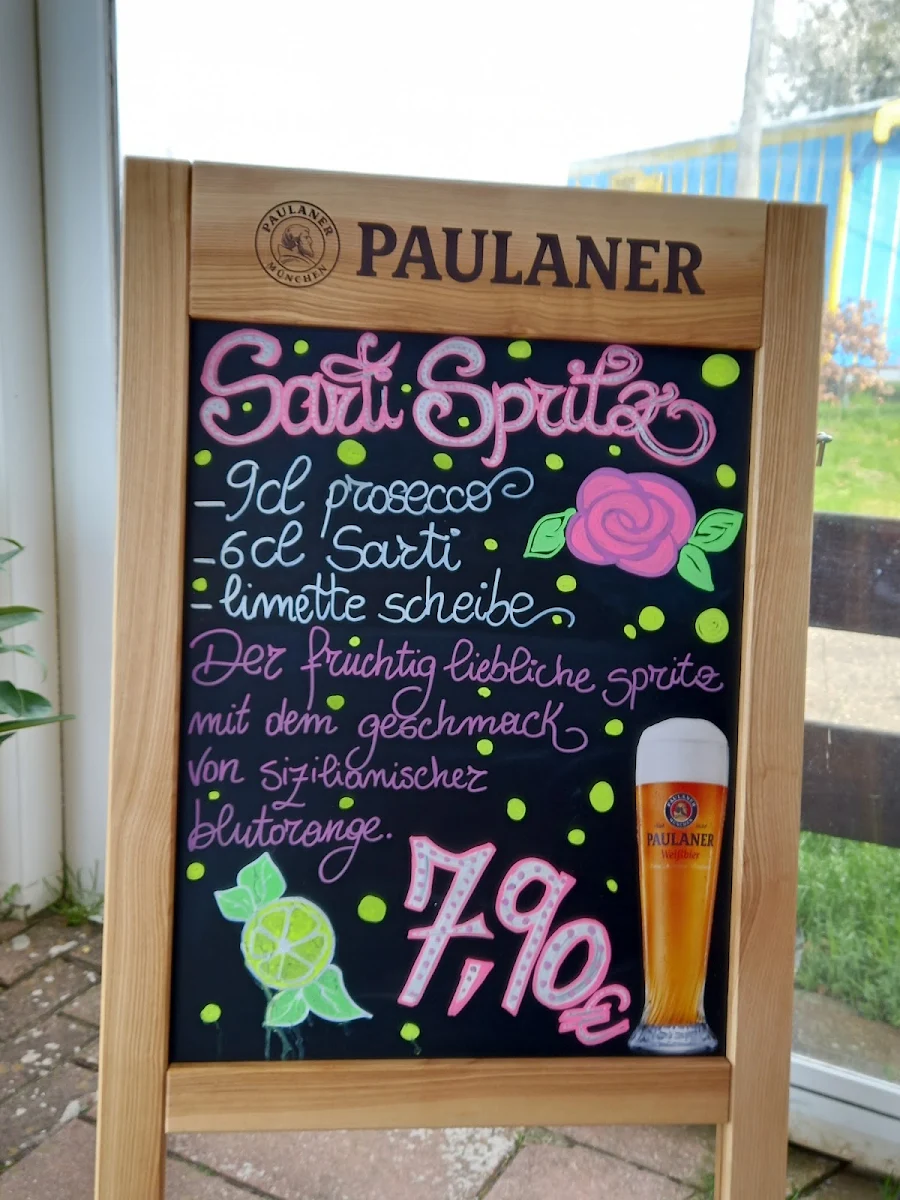 PAULANER
MÜNCHEN
PAULANER
Sarti Spritz
- 9cl prosecco
- 6cl Sarti
- limette scheibe
Der fruchtig liebliche spritz
mit dem geschmack
von sizilianischer
blutorange.
7,90€
PAULANER
PAULANER
Weißbier